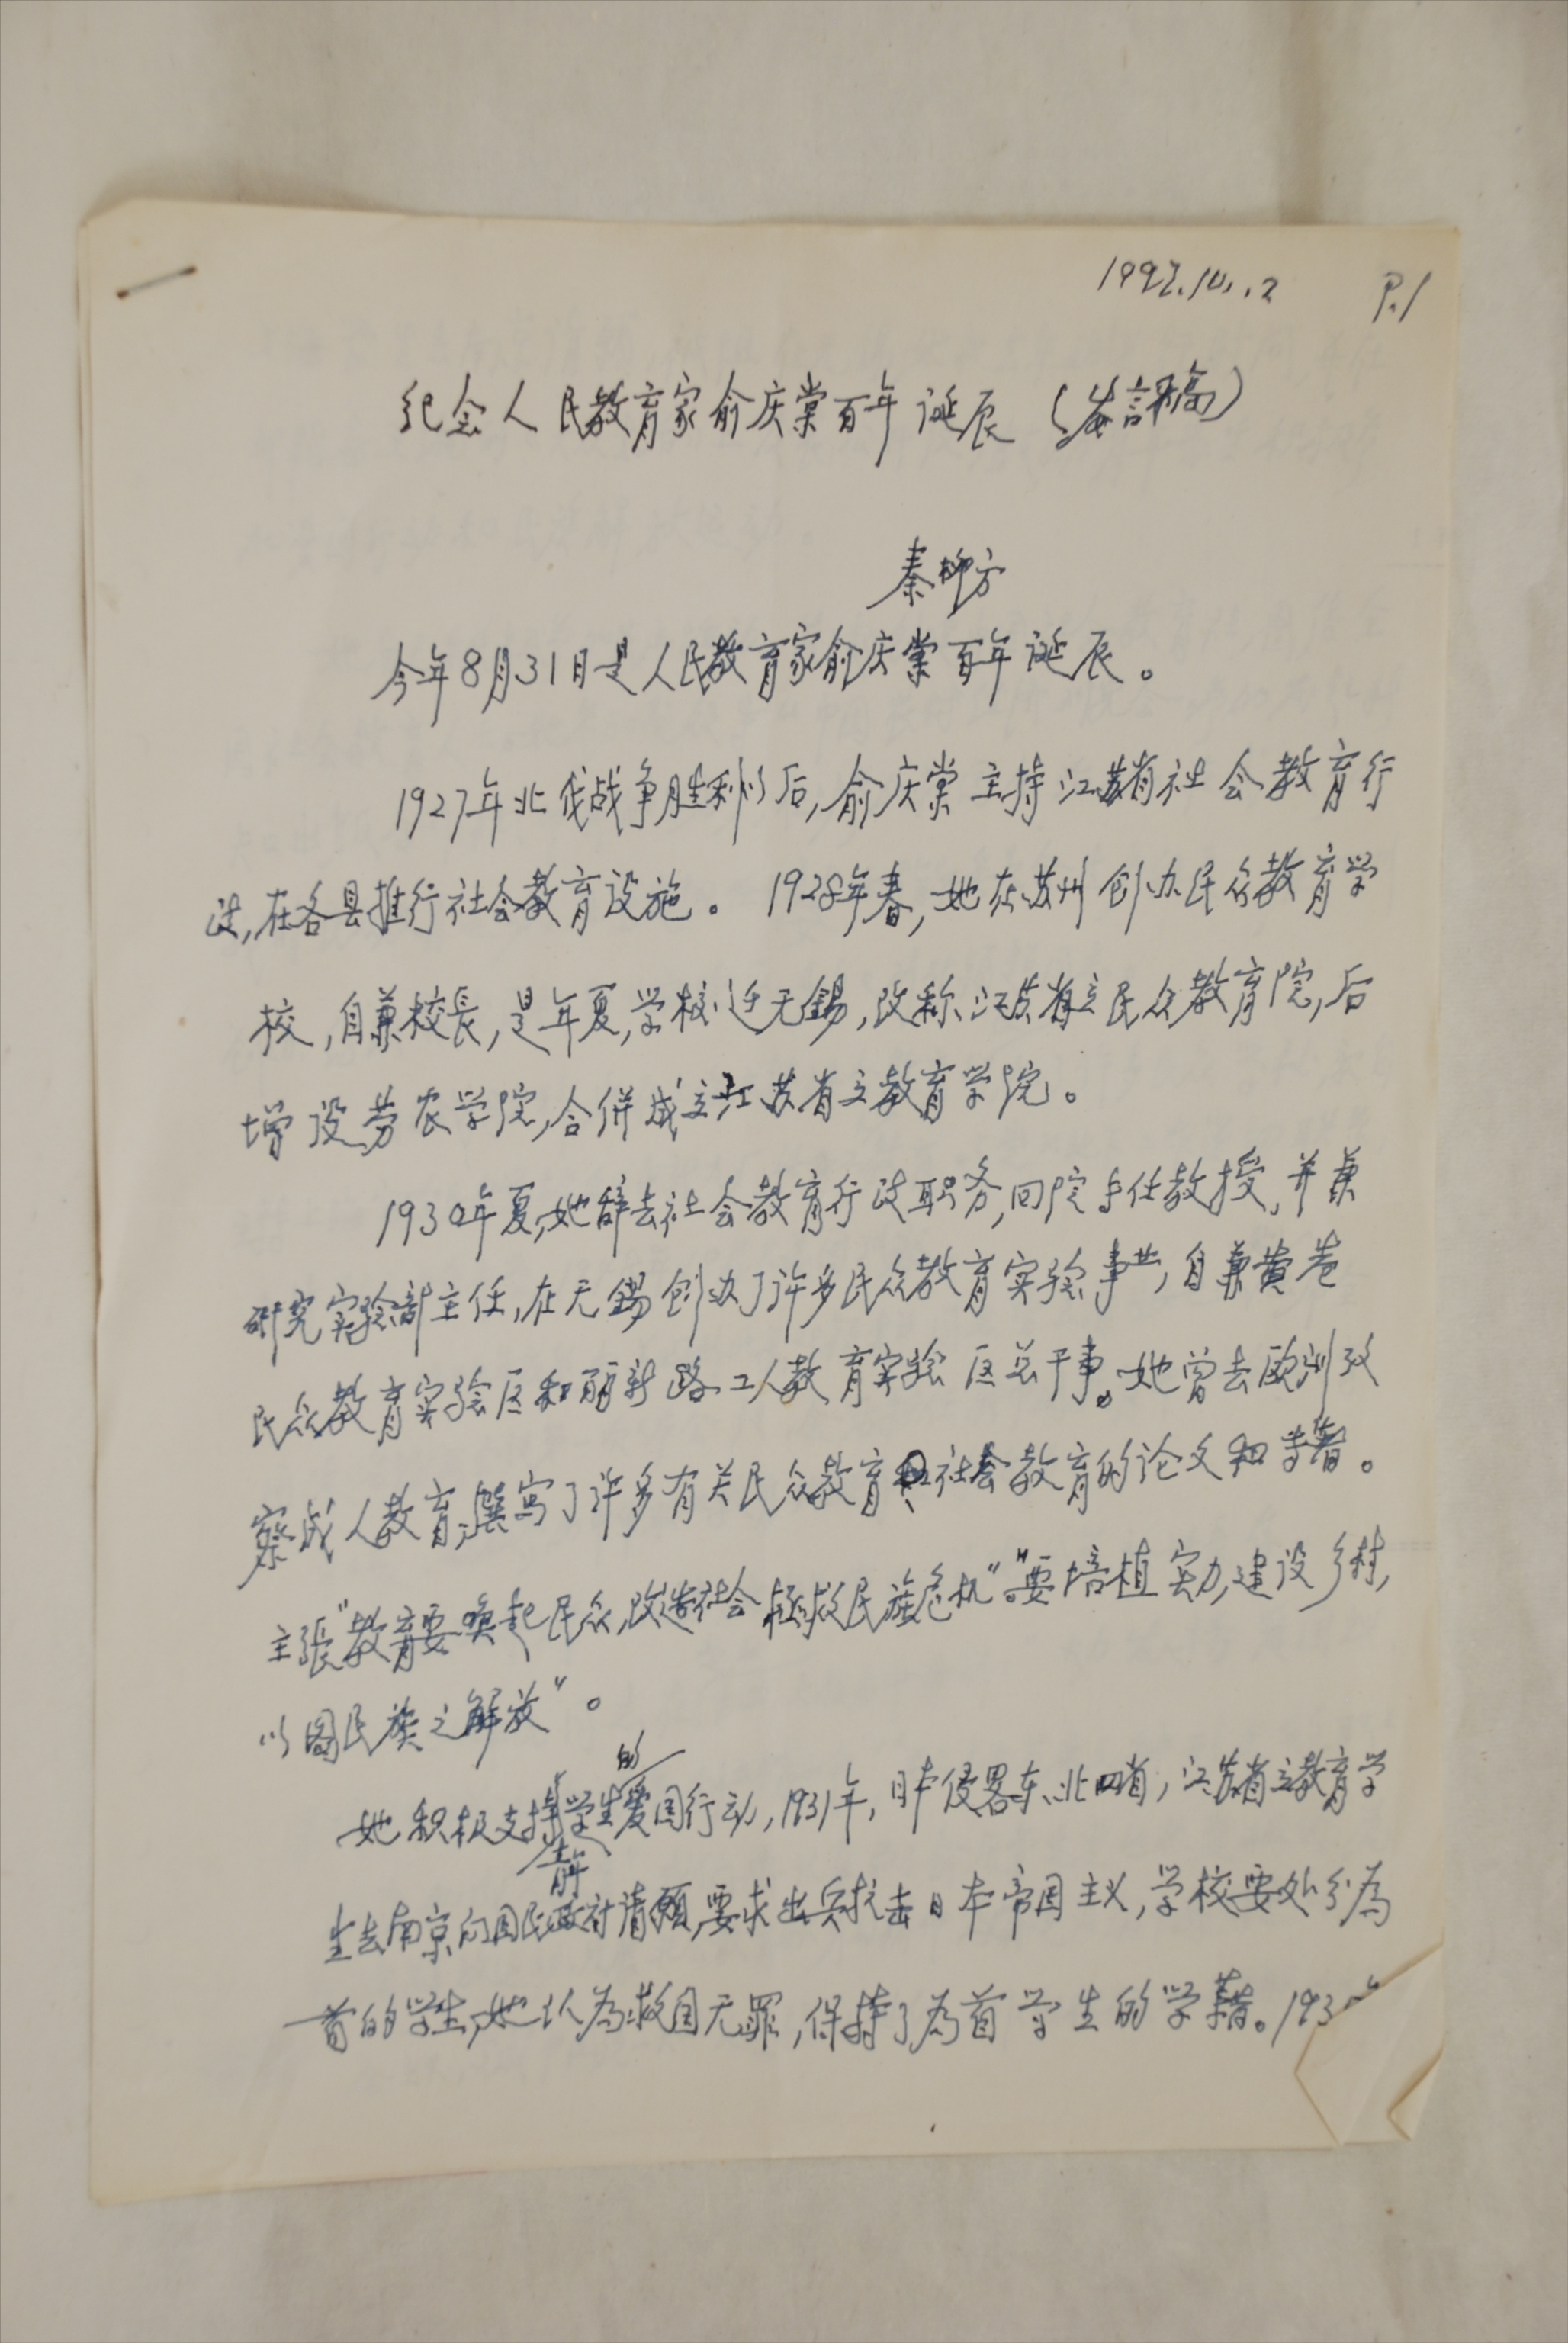 1997.10..2 P.1
纪念人民教育家俞庆棠百年诞辰(发言稿)
秦柳方
今年8月31日是人民教育家俞庆棠百年诞辰。
1927年北伐战争胜利以后,俞庆棠主持江苏省社会教育行
政,在各县推行社会教育设施。1928年春,她在苏州创办民众教育学
校,自兼校長,是年夏,学校迁无錫,改称江苏省立民众教育院,后
增设劳农学院,合併成立江苏省立教育学院。
1930年夏,她辞去社会教育行政职务,回院专任教授,并兼
研究实验部主任,在无錫创办了许多民众教育实验事业,自兼黄巷
民众教育实验区和丽新路工人教育实验区总干事。她曾去欧洲攷
察成人教育,撰写了许多有关民众教育和社会教育的论文和专著。
主張"教育要唤起民众,改造社会,拯救民族危机"。"要培植实力,建设乡村,
以图民族之解放"。
的
她积极支持学生爱国行动,1931年,日本侵畧东北四省,江苏省立教育学
院
生去南京向国民政府请願,要求出兵抗击日本帝国主义,学校要处分为
首的学生,她认为救国无罪,保持了为首学生的学籍。193